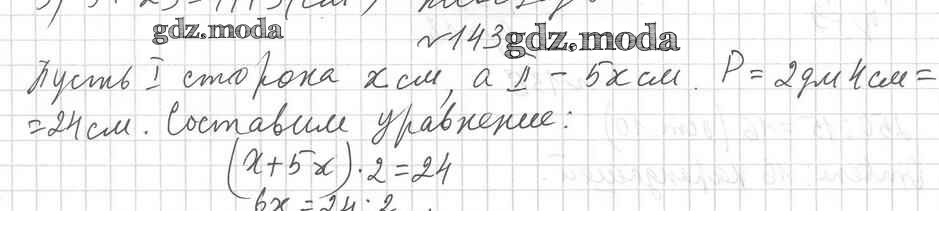 gdz.moda
№143 gdz.moda
Пусть I сторона x см, а II - 5x см. P = 2дм 4см =
= 24 см. Составим уравнение:
(x + 5x) · 2 = 24
6x = 24 : 2